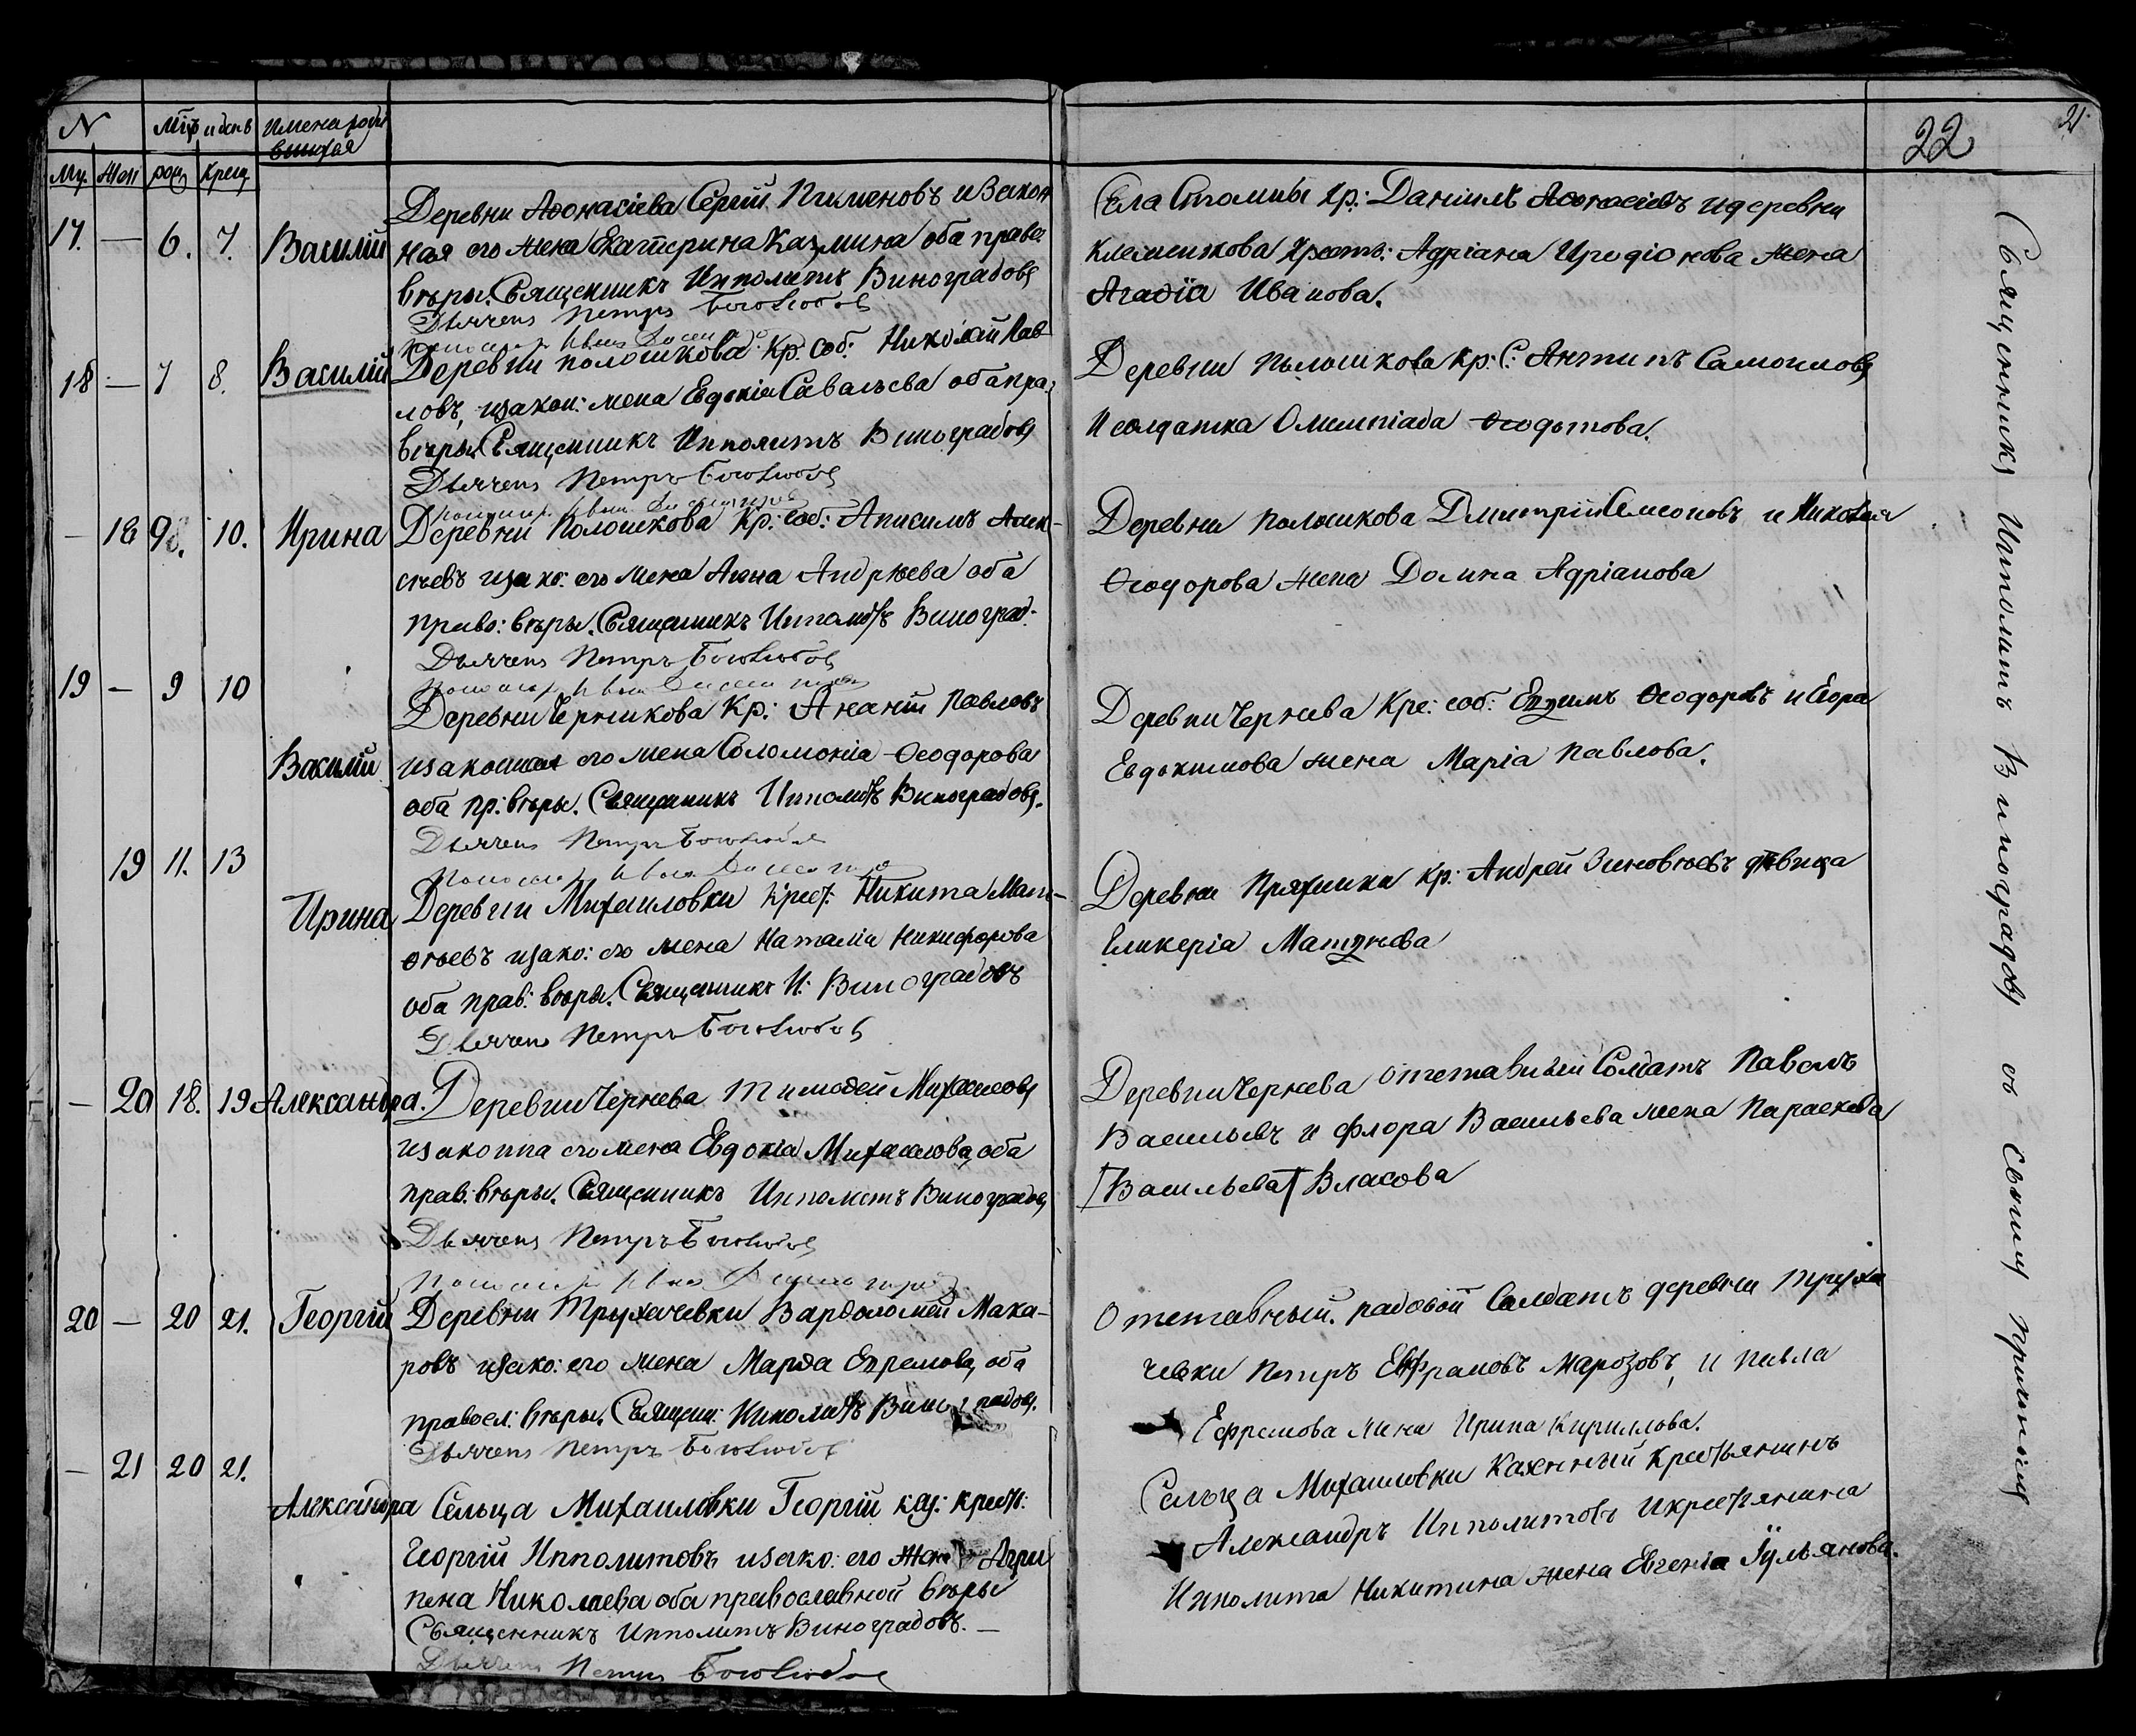 N Мц̃ъ и день Имена родив
шихся
Му. Жен рож крещ
22
21
17. — 6. 7. Василій
Деревни Аѳонасіева Сергій Пименовъ и Закон
ная его жена Екатерина Казмина оба право:
вѣры. Священникъ Ипполитъ Виноградовъ
Дьячекъ Петръ Боголюбовъ
Села Стомины Кр: Даніилъ Аѳонасіевъ и деревни
Клеменкова Крест: Адріана Иродіонова жена
Агафія Иванова.
18 — 7 8. Василій
Деревни полошкова Кр: соб: Николай Пав
ловъ, изакон: жена Евдокія Савальева оба пра:
вѣры Священникъ Ипполитъ Виноградовъ
Дьячекъ Петръ Боголюбовъ
Деревни Полошкова Кр: С: Антипъ Самоиловъ
И солдатка Олимпіада Ѳеодотова.
— 18 9. 10. Ирина
Деревни Полошкова Кр: соб: Анисимъ Алек-
сѣевъ изако: его жена Анна Андрѣева оба
право: вѣры. Священникъ Ипполитъ Виноград.
Дьячекъ Петръ Боголюбовъ
Деревни Полошкова Дмитрій Симеоновъ и Николая
Ѳеодорова жена Домна Адріанова
19 — 9 10 Василій
Деревни Черникова Кр: Ананій Павловъ
изаконная его жена Соломонія Ѳеодорова
оба пр: вѣры. Священникъ Ипполитъ Виноградовъ.
Дьячекъ Петръ Боголюбовъ
Деревни Чернева Кре: соб: Ефимъ Ѳеодоровъ и Егора
Евдокимова жена Марія Павлова.
19 11. 13 Ирина
Деревни Михаиловки Крест: Никита Мат-
ѳѣевъ изако: его жена Наталія Никифорова
оба прав: вѣры. Священникъ И: Виноградовъ
Дьячекъ Петръ Боголюбовъ
Деревни Пряхинки кр: Андрей Зиновѣевъ дѣвица
Гликерія Матѳѣева
— 20 18. 19 Александра.
Деревни Чернева Тимоѳей Михаиловъ
изаконна его жена Евдокія Михаилова, оба
прав: вѣры. Священникъ Ипполитъ Виноградовъ
Дьячекъ Петръ Боголюбовъ
Деревни Чернева Отставный Солдатъ Павелъ
Васильевъ и Флора Васильева жена Параскева
[Васильева] Власова
20 — 20 21. Георгій
Деревни Трухачевки Варѳоломей Мака-
ровъ изако: его жена Марѳа Ефремова, оба
правосл: вѣры, Священ: Ипполитъ Виноградовъ.
Дьячекъ Петръ Боголюбовъ
Отставный. рядовой Солдатъ деревни Труха
чевки Петръ Ефрамовъ Марозовъ, и Павла
Ефремова жена Ирина Кириллова.
— 21 20 21. Александра
Сельца Михаиловки Георгій каз: крест:
Георгій Ипполитовъ изако: его жена Агри
пена Николаева оба православной вѣры
Священникъ Ипполитъ Виноградовъ. —
Дьячекъ Петръ Боголюбовъ
Сельца Михаиловки Казенный Крестьянинъ
Александръ Ипполитовъ И крестьянина
Ипполита Никитина жена Евгенія Іульянова.
Священникъ Ипполитъ Виноградовъ съ